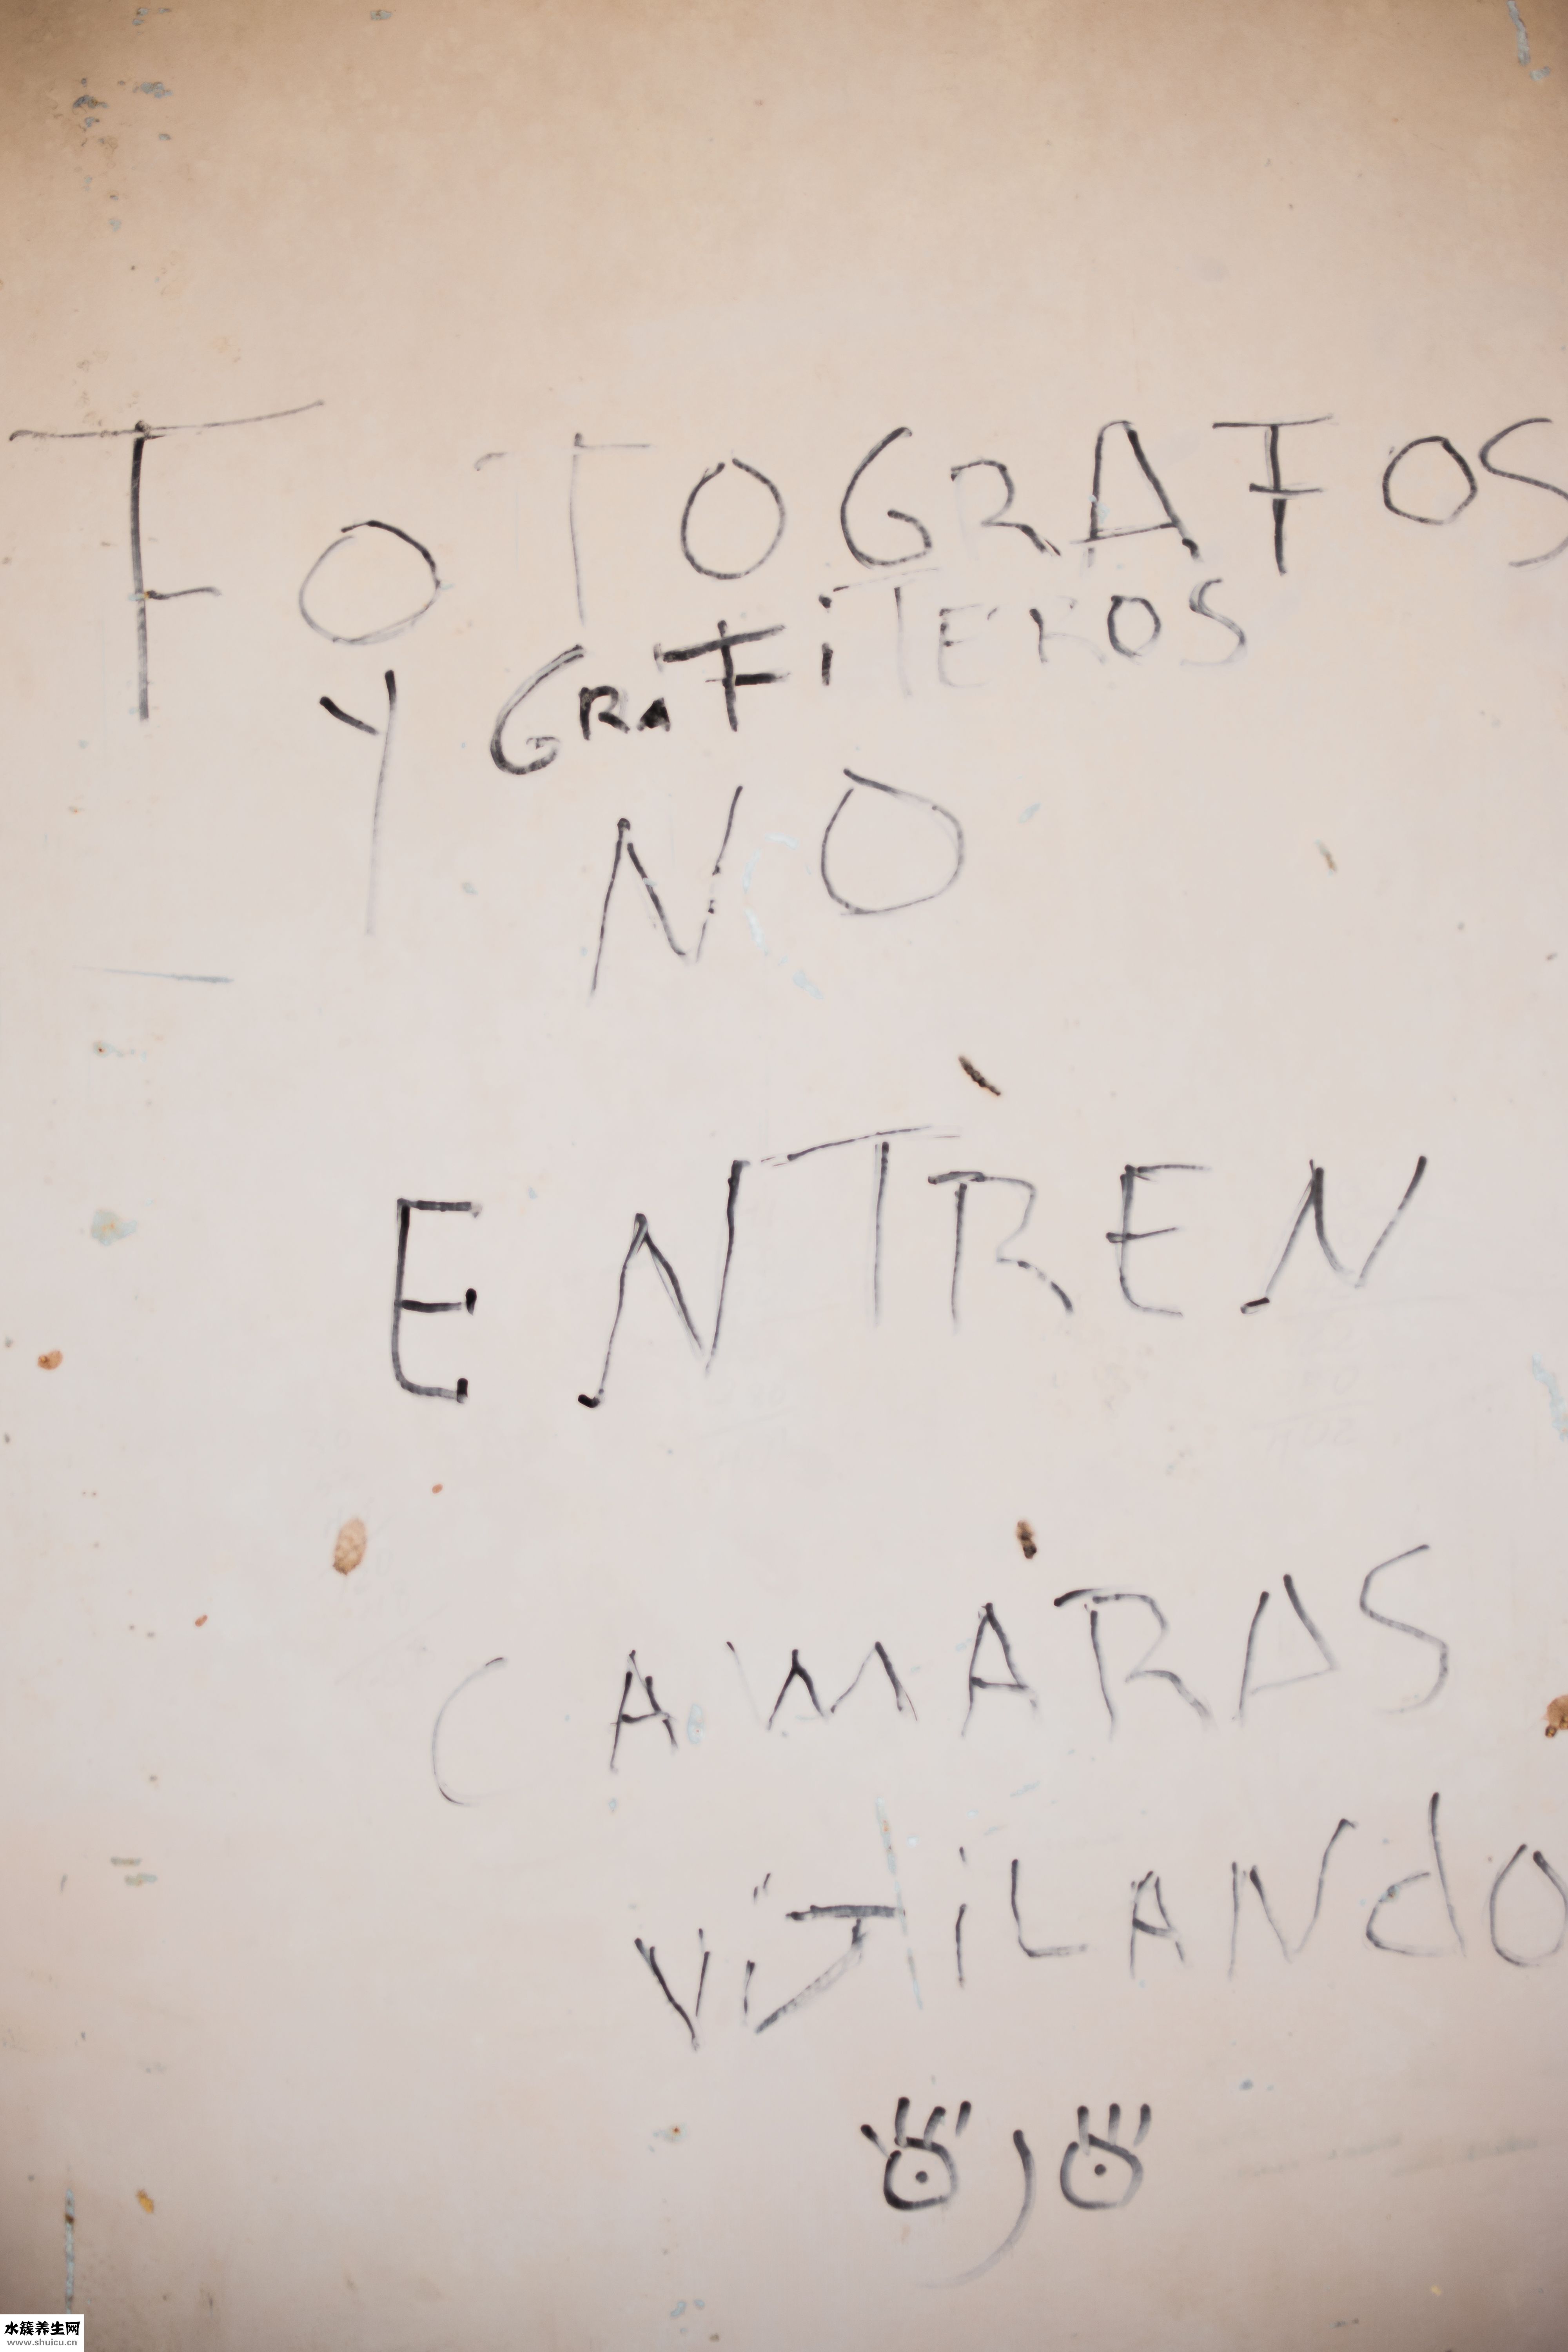 FOTOGRAFOS
Y GRAFiTEROS
NO
ENTREN
CAMARAS
ViJiLANdO
OJO
水簇养生网
www.shuicu.cn